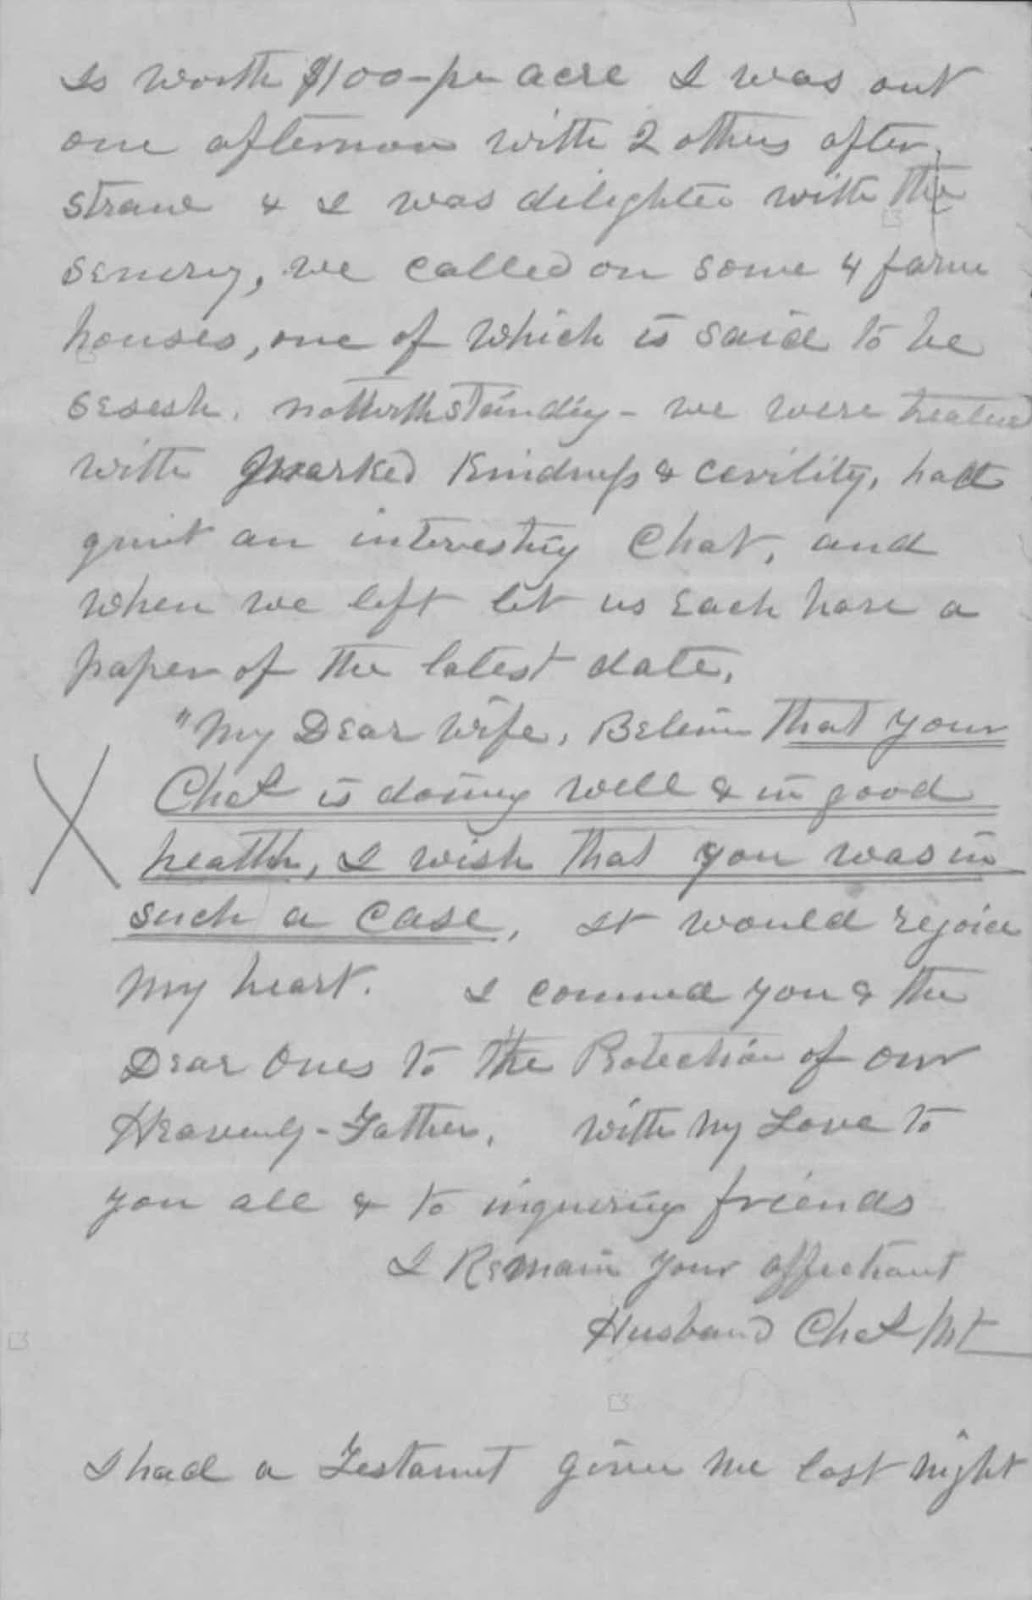 Is worth $100-pr acre I was out
one afternoon with 2 others after
straw & I was dilighted with the
senery, we called on some 4 farm
houses, one of which is said to be
sesesh. nottwithstandig - we were treated
with marked Kindness & cevility, had
quit an interesting Chat, and
when we left let us Each have a
paper of the latest date.
"My Dear wife, Believe that your
Chet is doing well & in good
health, I wish that you was in
such a case, it would rejoice
my heart. I commed you & the
Dear Ones to the Protection of our
Heavenly-Father. with my Love to
you all & to inquiring friends
I Remain your affectiont
Husband Chet
I had a Testament given me last night